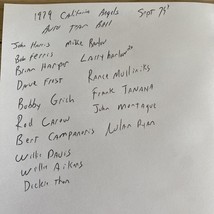 1979 California Angels Sept 79'
Auto Team Ball
John Harris Mike Barlow
Bob Ferris Larry harlow
Brian Harper
Dave Frost Rance Mulliniks
Bobby Grich Frank TANANA
Rod Carew John Montague
Bert Campaneris Nolan Ryan
Willie Davis
Willie Aikens
Dickie Thon